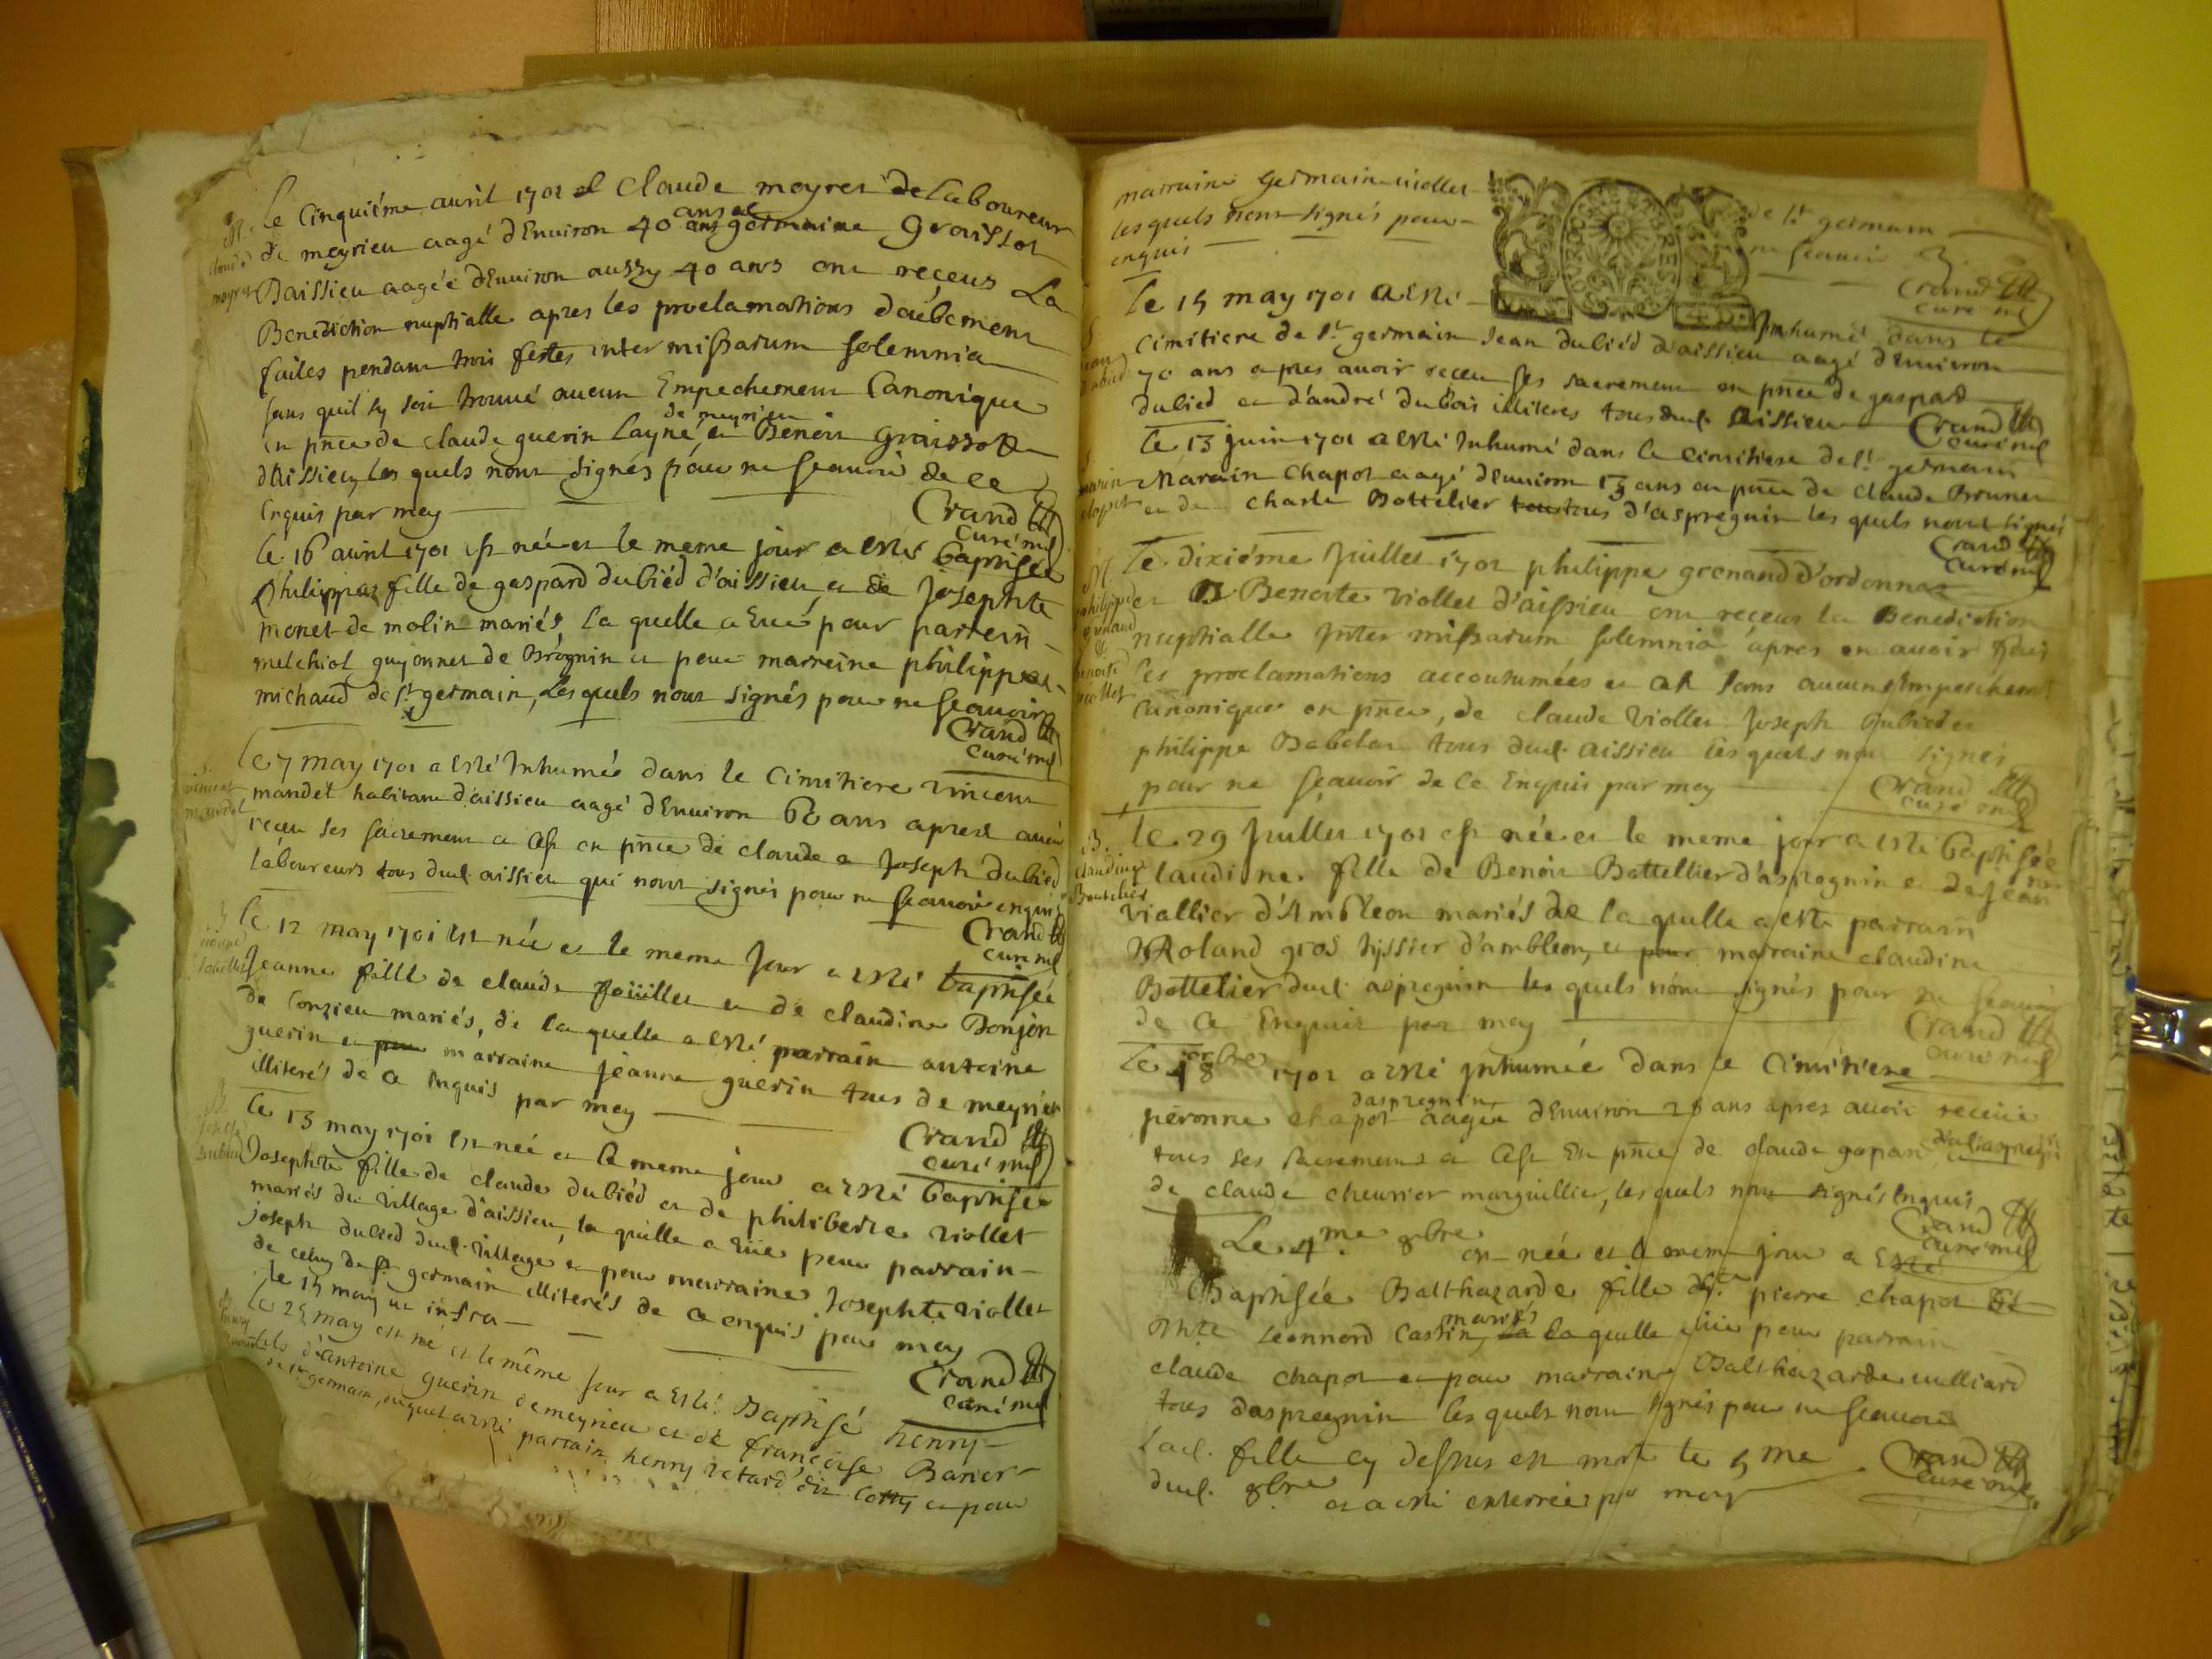 Le Cinquiéme avril 1701 Claude meyret de Laboureur
M. claude meyret
de meyrieu aagé d'Environ 40 ans et germaine Graissot
Daissieu aagée d'Environ aussy 40 ans ont reçeus La
Benediction nuptialle apres les proclamations deübement
faites pendant trois festes inter missarum solemnia
sans quil sy soit trouvé aucun Empechement Canonique
en pnce de claude guerin Layné de meyrieu et Benoit Graissot
d'Aissieu, les quels n'ont signés pour ne sçavoir de ce
Enquis par moy
Crand
Curé
le 16 avril 1701 est née et le meme jour a esté baptisée
philippaz fille de gaspard dubiéd d'aissieu et de Josephte
monet de molin mariés, la quelle a Eüe pour parrein
melchiot guyonnet de Brognin et pour marreine philippaz
michaud de St germain, Les quels n'ont signés pour ne sçavoir
Crand
curé
le 7 may 1701 a esté Inhumée dans le Cimitiere vincent
vincent mandet
mandet habitant d'aissieu aagé d'Environ 60 ans apres avoir
reçeu ses sacrement en pnce de claude et Joseph dubied
laboureurs tous dud. aissieu qui n'ont signés pour ne sçavoir enquis
Crand
curé
B
le 12 may 1701 est née et le meme Jour a esté baptisée
Jeanne fille de claude foüillet et de claudine Bonjon
de Conzieu mariés, de la quelle a esté parrain antoine
guerin et pour marraine jeanne guerin tous de meyrieu
illiterés de ce Inquis par moy
Crand
curé
B.
le 13 may 1701 est née et le meme jour a esté baptisée
Josephte fille de claude dubiéd et de philiberte viollet
mariés du village d'aissieu, la quelle a eüe pour parrain
joseph dubied dud. village et pour marraine Josephte viollet
de celuy de St germain illiterés de ce enquis pour moy
le 15 may ut infra
Crand
curé
le 25 may est né et le même jour a Esté Baptisé henry
fils d'antoine guerin de meyrieu et de françoise Barier
de St germain, duquel a esté parrain henry retard dit Cotty et pour
marraine Germaine viollet de St germain
les quels n'ont signés pour ne sçavoir
enquis
Crand
curé
le 15 may 1701 a Esté Inhumé dans le
Cimitiere de St germain Jean dubiéd d'aissieu aagé d'Environ
70 ans apres avoir receu ses sacrement en pnce de gaspard
dubied et d'andré dubois illiterés tous dud. Aissieu
Crand
curé
le 13 juin 1701 a Esté Inhumé dans le cimitiere de St germain
Marain Chapot aagé d'Environ 13 ans en pnce de Claude Brunet
et de Charle Bottelier tous d'aspregnin les quels n'ont signés
Crand
curé
M.
le dixiéme Juillet 1701 philippe grenand d'ordonnaz
et Benoite viollet d'aissieu ont receus la Benediction
nuptialle Inter missarum solemnia apres en avoir
les proclamations accoutumées et sans aucun Empeschemt
Canonique en pnce, de claude viollet Joseph dubied et
philippe Babolat tous dud. aissieu les quels signés
pour ne sçavoir de ce Enquis par moy
Crand
curé
B. claudine Bouttelier
le 29 Juillet 1701 est née et le meme jour a esté baptisée
claudine fille de Benoit Bottellier d'aspregnin et de jeanne
viallier d'Ambleon mariés de la quelle a esté parrain
Roland gros tissier d'ambleon, et pour marraine claudine
Bottelier dud. aspregnin les quels n'ont signés pour ne sçavoir
de ce Enquis par moy
Crand
curé
le 8bre 1701 a esté Inhumée dans le Cimitiere
péronne chapot daspregnin aagée d'Environ ans apres avoir receüe
tous ses sacrements en pnce de claude gopan dud. aspregnin
de claude cheurier marguillier, les quels n'ont signés Enquis
Crand
curé
Le 4me 8bre est née et le meme jour a Esté
Baptisée Balthazarde fille de pierre chapot
Leonnord Castin mariés la quelle a eüe pour parrain
claude chapot et pour marraine Balthazarde
tous daspregnin les quels n'ont signés pour ne sçavoir
Lad. fille cy dessus est morte le 5me
dud. 8bre et a esté enterrée pr moy
Crand
curé